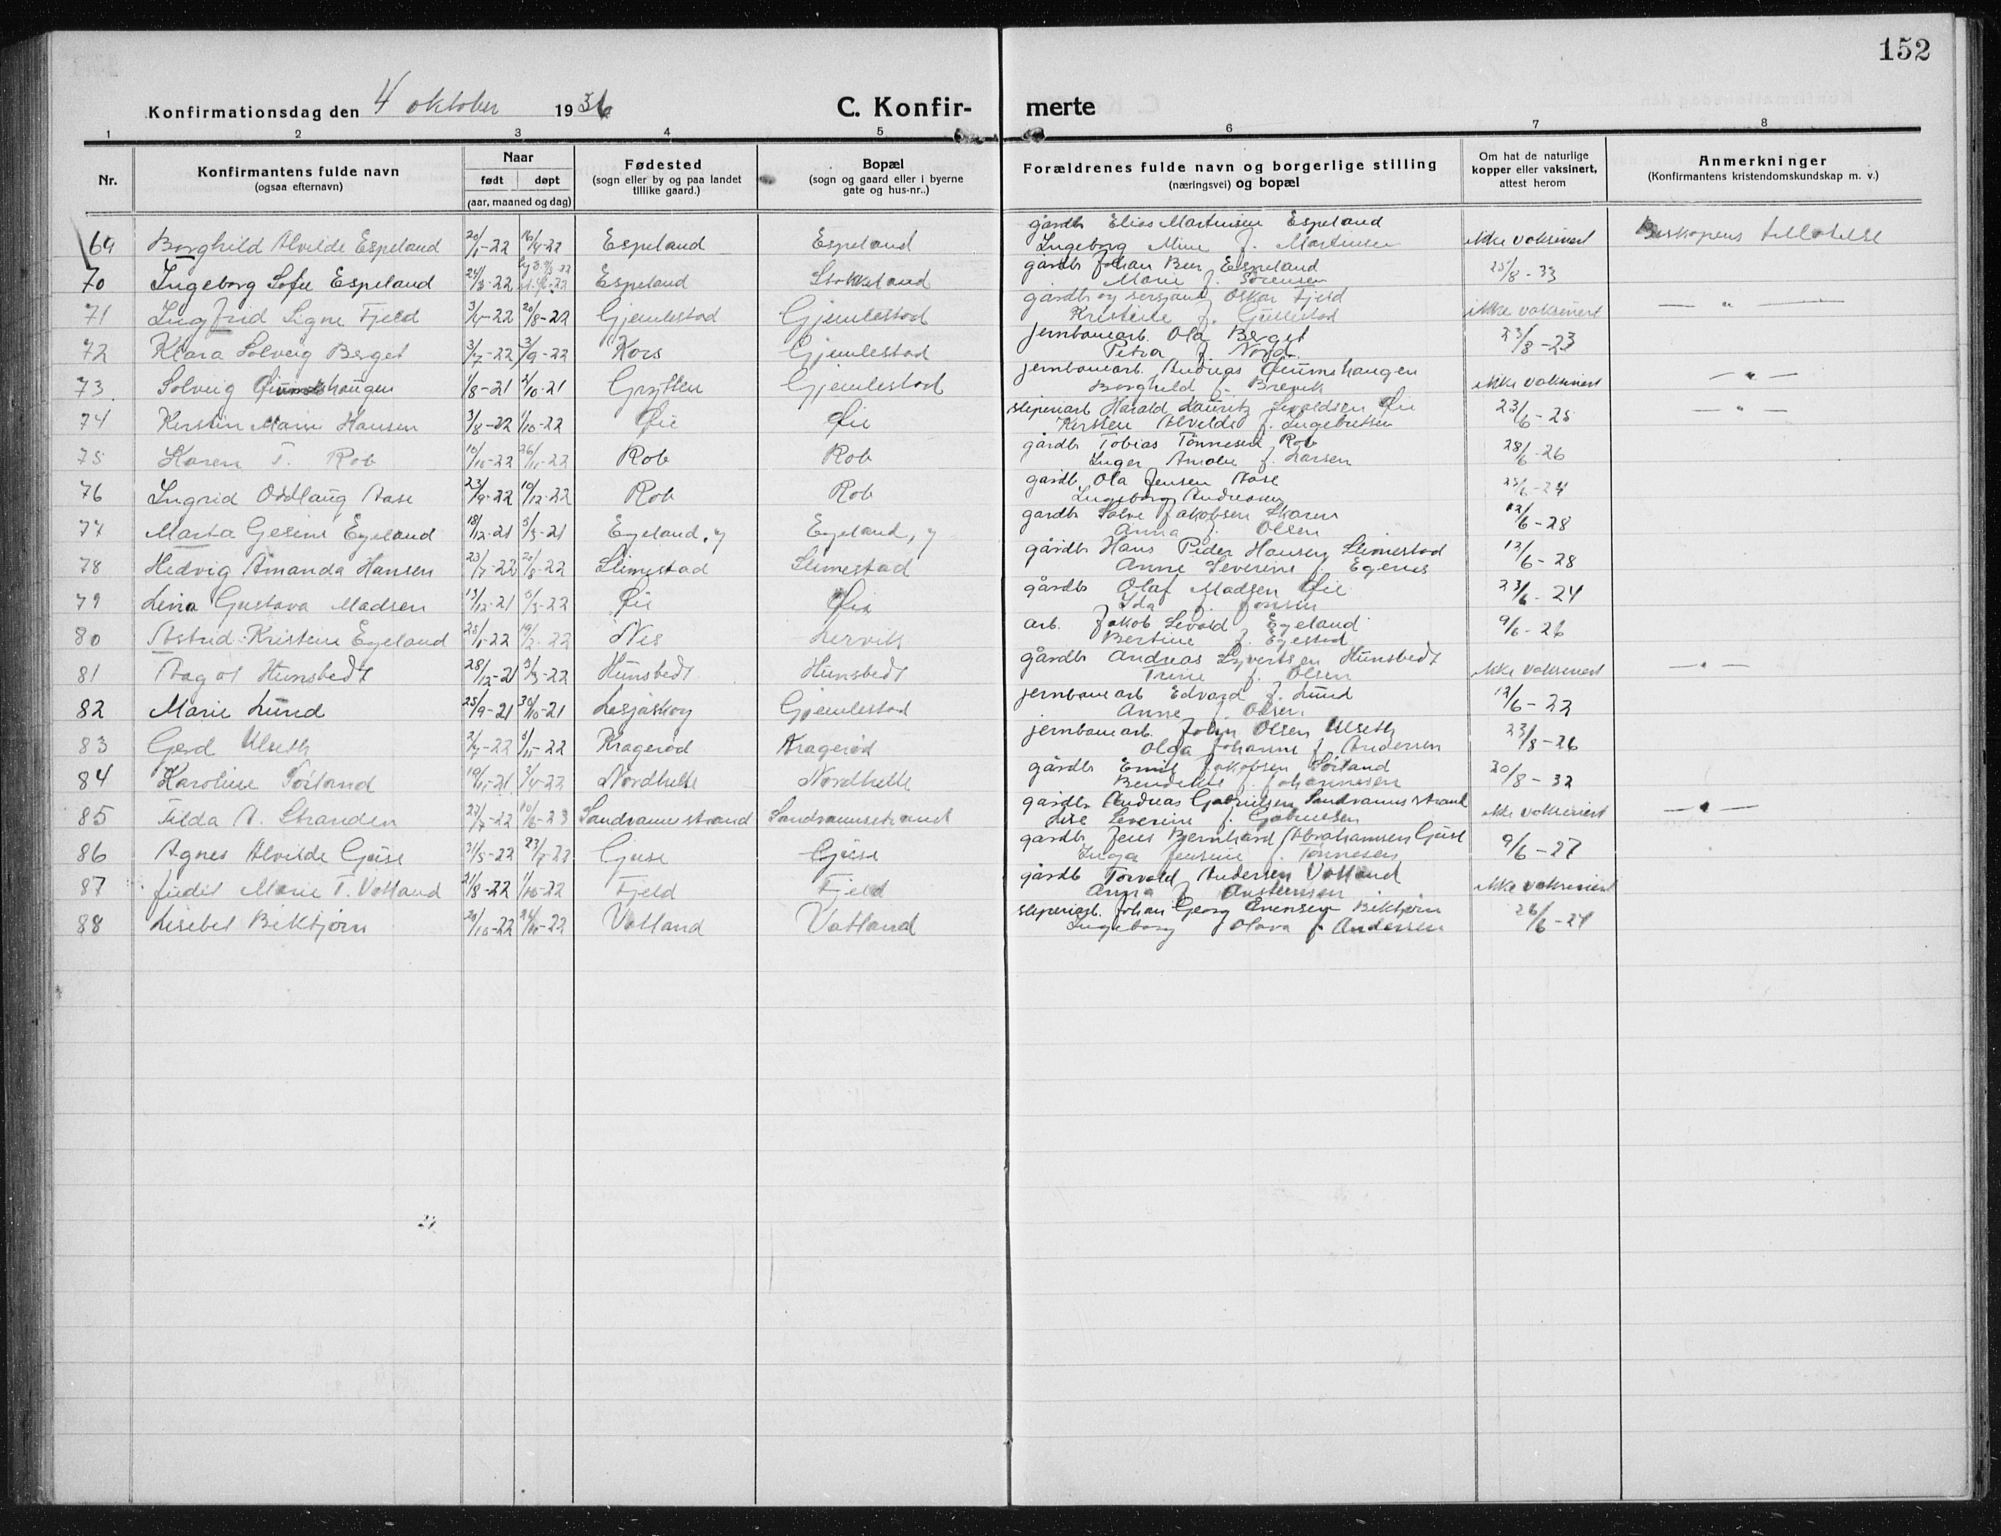 152
Konfirmationsdag den 4 oktober 1936 C. Konfir- merte
1 2 3 4 5 6 7 8
Nr. Konfirmantens fulde navn (ogsaa efternavn) Naar født døpt (aar, maaned og dag) Fødested (sogn eller by og paa landet tillike gaard.) Bopæl (sogn og gaard eller i byerne gate og hus-nr..) Forældrenes fulde navn og borgerlige stilling (næringsvei) og bopæl Om hat de naturlige kopper eller vaksinert, attest herom Anmerkninger (Konfirmantens kristendomskundskap m. v.)
gårdb Elias Martinsen Espeland
69 Borghild Alvilde Espeland 20/1-22 16/4-22 Espeland Espeland Ingeborg Mine f. Martinsen ikke vaksinert Biskopens tillatelse
gårdb Johan Ber Espeland
70 Ingeborg Sofie Espeland 24/3-22 Espeland Stokkeland Marie f. Sörensen 25/8-33
gårdb og sersjant Oskar Fjeld
71 Ingfrid Signe Fjeld 3/4-22 20/8-22 Gjemlestad Gjemlestad Kristine f. Gullestad ikke vaksinert — " —
jernbanearb. Ola Berget
72 Klara Solveig Berget 3/7-22 3/9-22 Kors Gjemlestad Petra f. Nord 23/8-23
jernbanearb. Andreas Øiumshaugen
73 Solveig Øiumshaugen 1/8-21 2/10-21 Grytten Gjemlestad Borghild f. Brevik ikke vaksinert — " —
sliperiarb Harald Lauritz Sevaldsen Øie
74 Kersten Marie Hansen 3/8-22 1/10-22 Øie Øie Kersten Alvilde f. Ingebretsen 23/6-25 — " —
gårdb Tobias Tönnesen Rob
75 Karen T. Rob 10/10-22 26/11-22 Rob Rob Inger Amalie f. Larsen 28/6-26
gårdb Ola Jensen Aase
76 Ingrid Oddlaug Aase 23/9-22 10/12-22 Rob Rob Ingeborg Andreasen 25/6-24
gårdb Salve Jakobsen Skaren
77 Marta Gesine Egeland 18/12-21 5/3-21 Egeland, y Egeland, y Anna f. Olsen 12/6-28
gårdb Hans Peder Hansen Slimestad
78 Hedvig Amanda Hansen 23/7-22 20/8-22 Slimestad Slimestad Anne Severine f. Egenes 12/6-28
gårdb Olaf Madsen Øie
79 Lina Gustava Madsen 13/12-21 5/3-22 Øie Øie Ida f. Jonsen 23/6-24
arb. Jakob Sevald Egeland
80 Astrid Kristine Egeland 25/1-22 19/2-22 Nes Lervik Bertine f. Egestad 9/6-26
gårdb Andreas Syvertsen Hunsbedt
81 Aagot Hunsbedt 28/12-21 5/3-22 Hunsbedt Hunsbedt Trine f. Olsen ikke vaksinert — " —
jernbanearb Edvard J. Lund
82 Marie Lund 25/9-21 30/10-21 Lesjaskog Gjemlestad Anne f. Olsen 12/6-22
jernbanearb. John Olsen Ulseth
83 Gerd Ulseth 2/7-22 5/11-22 Kragerød Kragerød Olga Johanne f. Andersen 23/8-26
gårdb Emil Jakobsen Sörland
84 Karoline Sörland 19/11-21 3/4-22 Nordhelle Nordhelle Bendikte f. Johannesen 20/8-32
gårdb. Andreas Gabrielsen Sandvannsstrand
85 Tilda A. Stranden 22/7-22 10/6-23 Sandvannsstrand Sandvannsstrand Lise Severine f. Gabrielsen ikke vaksinert — " —
gårdb Jens Bernhard Abrahamsen Gjuse
86 Agnes Alvilde Gjuse 21/5-22 23/7-22 Gjuse Gjuse Inga Jensine f. Tönnesen 9/6-27
gårdb Torvald Andersen Vatland
87 Judit Marie T. Vatland 21/8-22 1/10-22 Fjeld Fjeld Anna f. Austensen ikke vaksinert
sliperiarb. Johan Georg Evensen Bikbjørn
88 Lisebet Bikbjørn 20/10-22 26/11-22 Vatland Vatland Ingeborg Olava f. Andersen 26/6-24